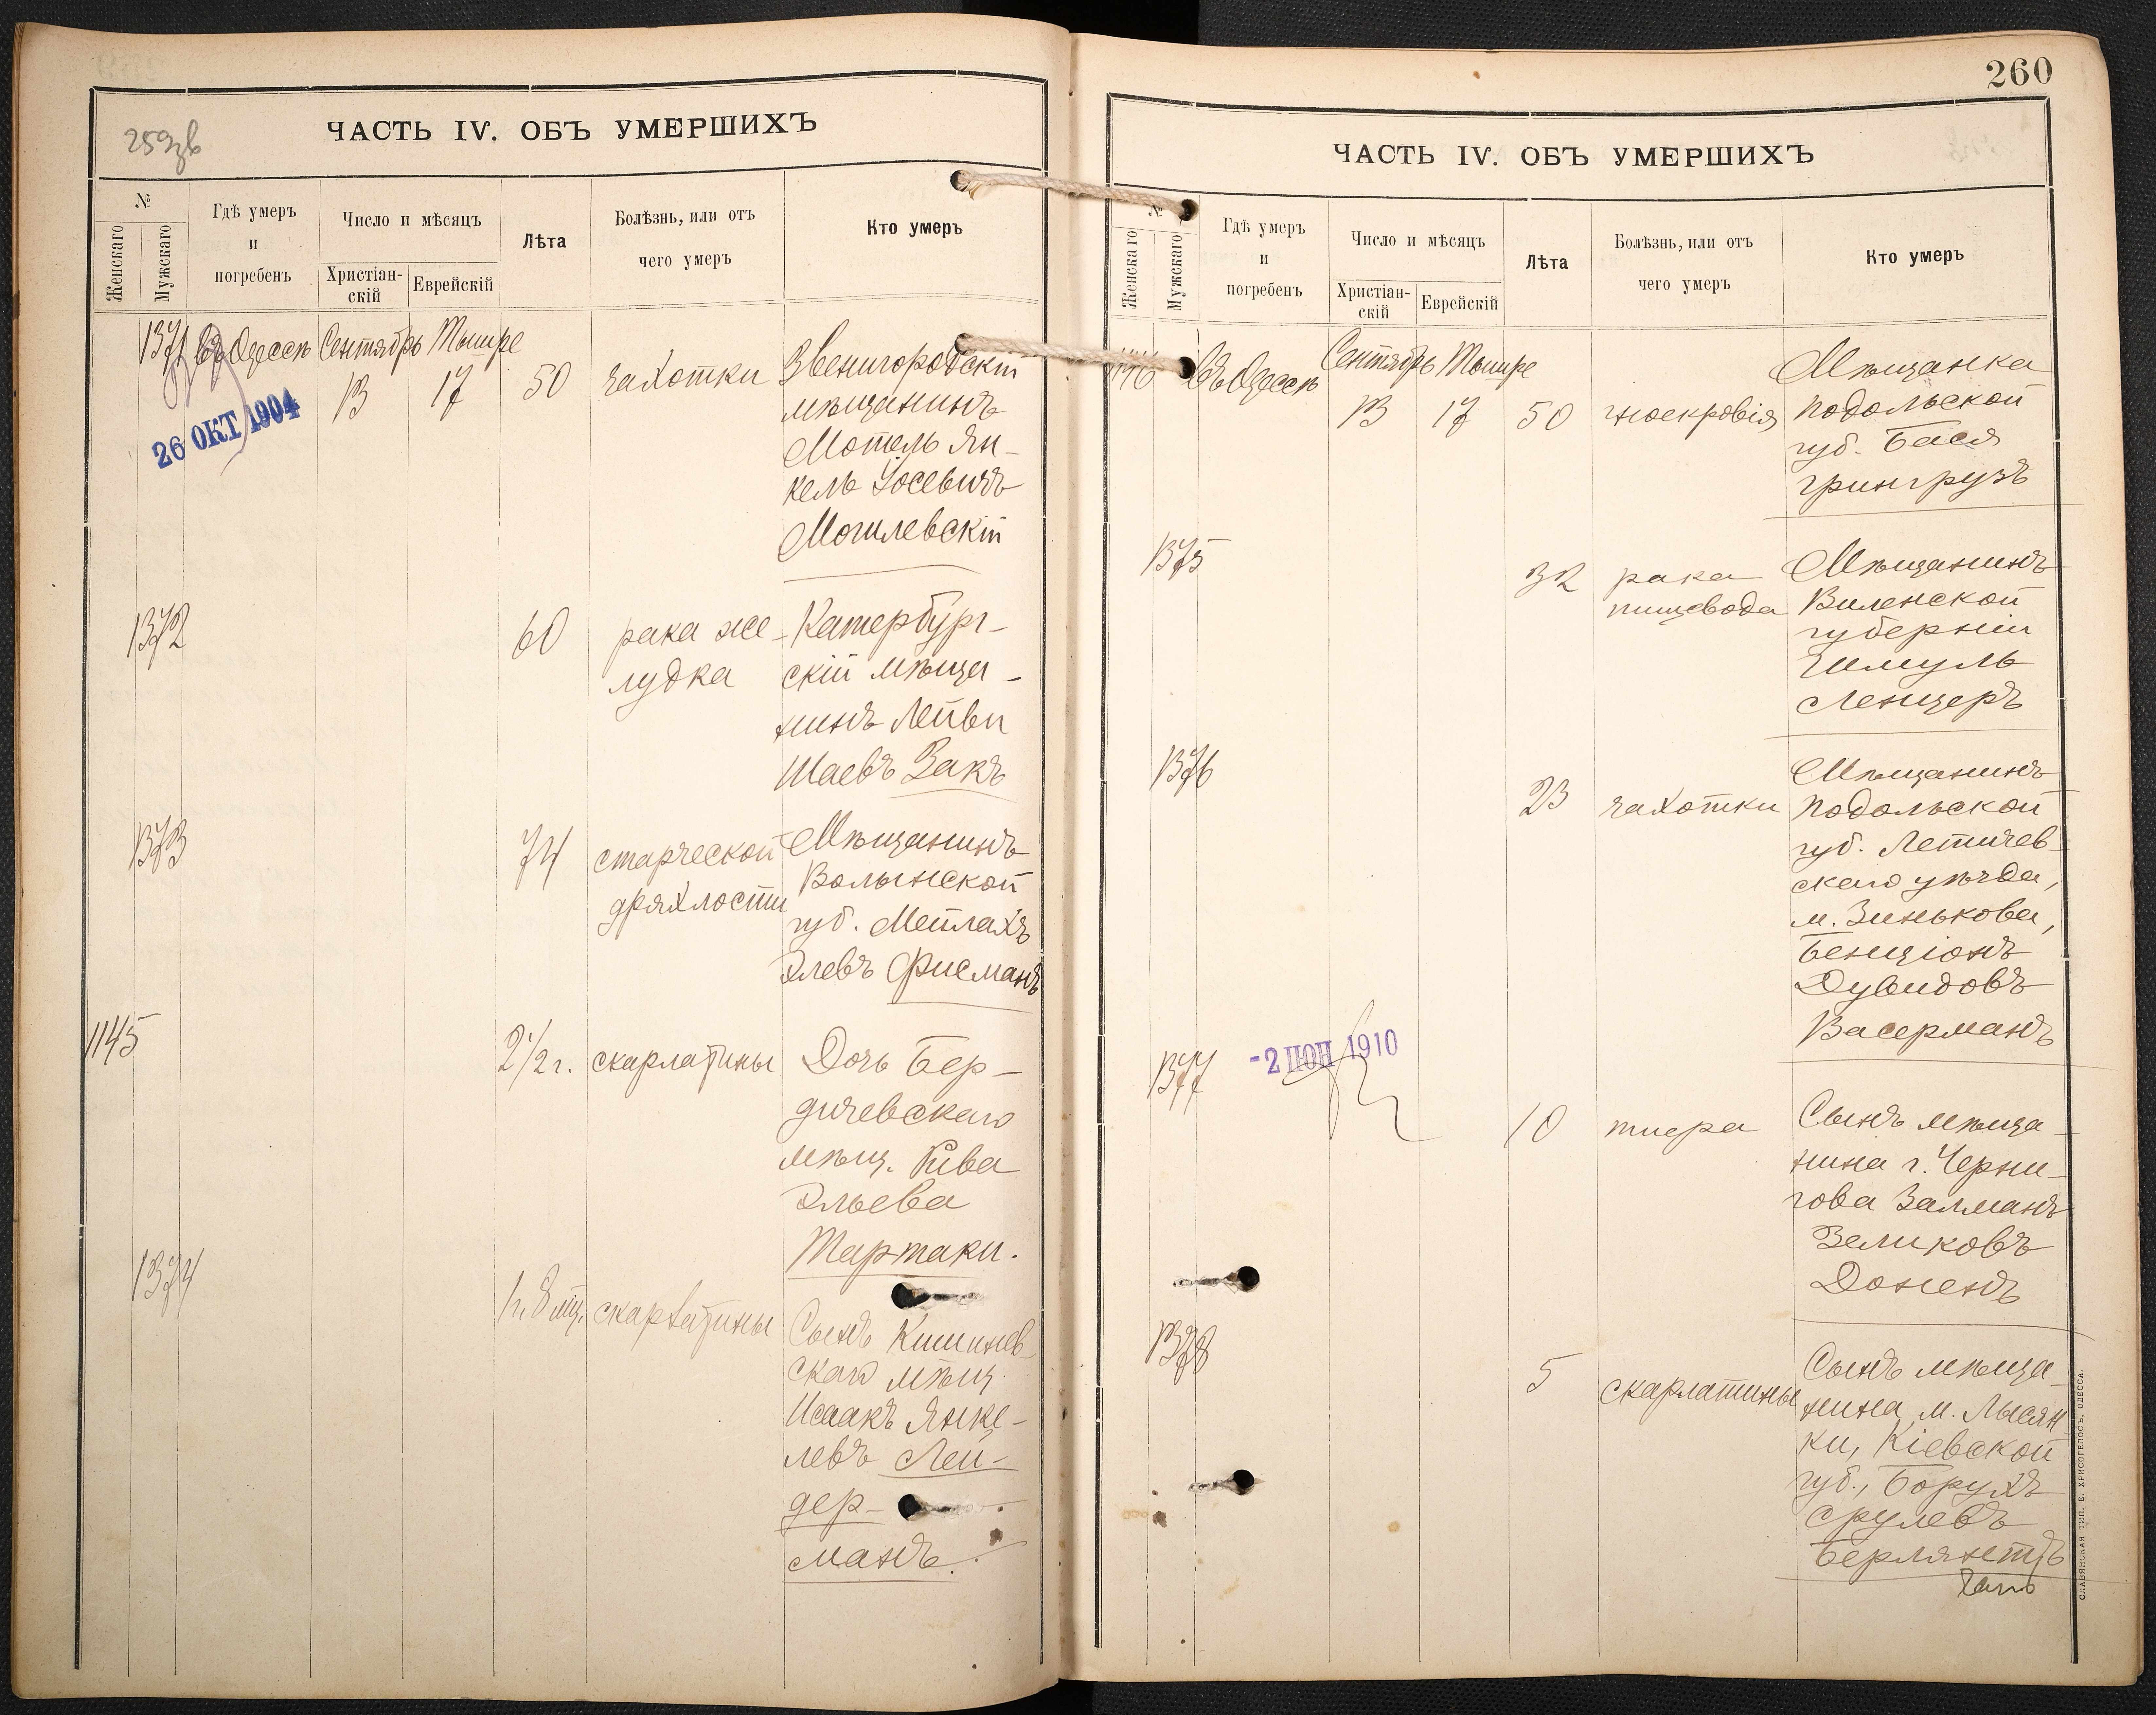 259 зв
ЧАСТЬ IV. ОБЪ УМЕРШИХЪ
№
Женскаго
Мужскаго
Гдѣ умеръ
и
погребенъ
Число и мѣсяцъ
Христіан-
скій
Еврейскій
Лѣта
Болѣзнь, или отъ
чего умеръ
Кто умеръ
1371 въ Одессѣ Сентябрь Тишре
13 17 50 чахотки Звенигородскій
26 ОКТ 1904
мѣщанинъ
Мотель Ян-
кель Іосевичъ
Могилевскій
1372 60 рака же- Катербург-
лудка скій мѣща-
нинъ Лейви
Шаевъ Закъ
1373 74 старческой Мѣщанинъ
дряхлости Волынской
губ. Мейлахъ
Элевъ Фисманъ
1145 2 1/2 г. скарлатины Дочь Бер-
дичевскаго
мѣщ. Рива
Эльева
Тартаки.
1374 1 г. 8 мц. скарлатины Сынъ Кишинев-
скаго мѣщ.
Исаакъ Янке-
левъ Лей-
дер-
манъ.
260
ЧАСТЬ IV. ОБЪ УМЕРШИХЪ
№
Женскаго
Мужскаго
Гдѣ умеръ
и
погребенъ
Число и мѣсяцъ
Христіан-
скій
Еврейскій
Лѣта
Болѣзнь, или отъ
чего умеръ
Кто умеръ
1146 въ Одессѣ Сентябрь Тишре Мѣщанка
13 17 50 гноекровія Подольской
губ. Бася
Грингрузъ
1375 32 рака Мѣщанинъ
пищевода Виленской
губерніи
Шмуль
Ленцеръ
1376 23 чахотки Мѣщанинъ
Подольской
губ. Летичев-
скаго уѣзда,
м. Зинькова,
Бенціонъ
Дувидовъ
Васерманъ
1377 -2 ІЮН 1910
10 тиера Сынъ мѣща-
нина г. Черни-
гова Залманъ
Зеликовъ
Доненъ
1378 5 скарлатины Сынъ мѣща-
нина м. Лысян-
ки, Кіевской
губ., Борухъ
Срулевъ
Берлянтъ
СЛАВЯНСКАЯ ТИП. Е. ХРИСОГЕЛОСЪ, ОДЕССА.